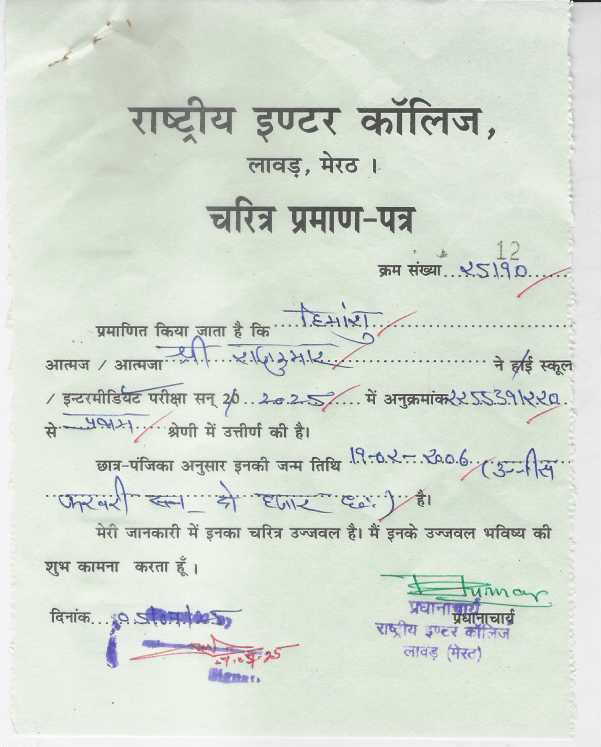 राष्ट्रीय इण्टर कॉलिज,
लावड़, मेरठ ।
चरित्र प्रमाण-पत्र
12
क्रम संख्या
प्रमाणित किया जाता है कि हिमांशु
आत्मज / आत्मजा श्री राजकुमार ने हाई स्कूल
/ इन्टरमीडियेट परीक्षा सन् 20 2025 में अनुक्रमांक
से प्रथम श्रेणी में उत्तीर्ण की है।
छात्र-पंजिका अनुसार इनकी जन्म तिथि 19-02-2006 (उन्नीस
फरवरी सन् दो हजार छः) है।
मेरी जानकारी में इनका चरित्र उज्जवल है। मैं इनके उज्जवल भविष्य की
शुभ कामना करता हूँ ।
Kumar
दिनांक
प्रधानाचार्य
प्रधानाचार्य
राष्ट्रीय इण्टर कॉलिज
लावड़ (मेरठ)